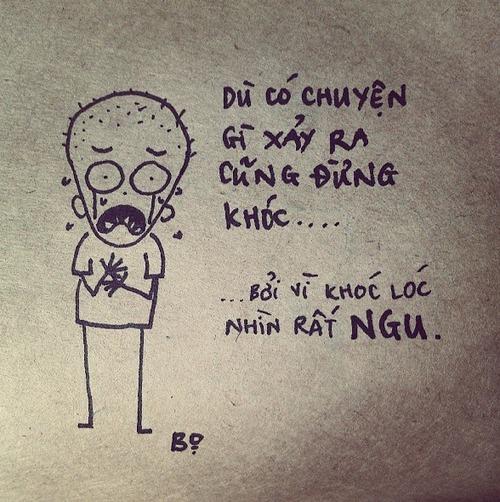 DÙ CÓ CHUYỆN
GÌ XẢY RA
CŨNG ĐỪNG
KHÓC....
...BỞI VÌ KHOC LOC
NHÌN RẤT NGU.
BỌ